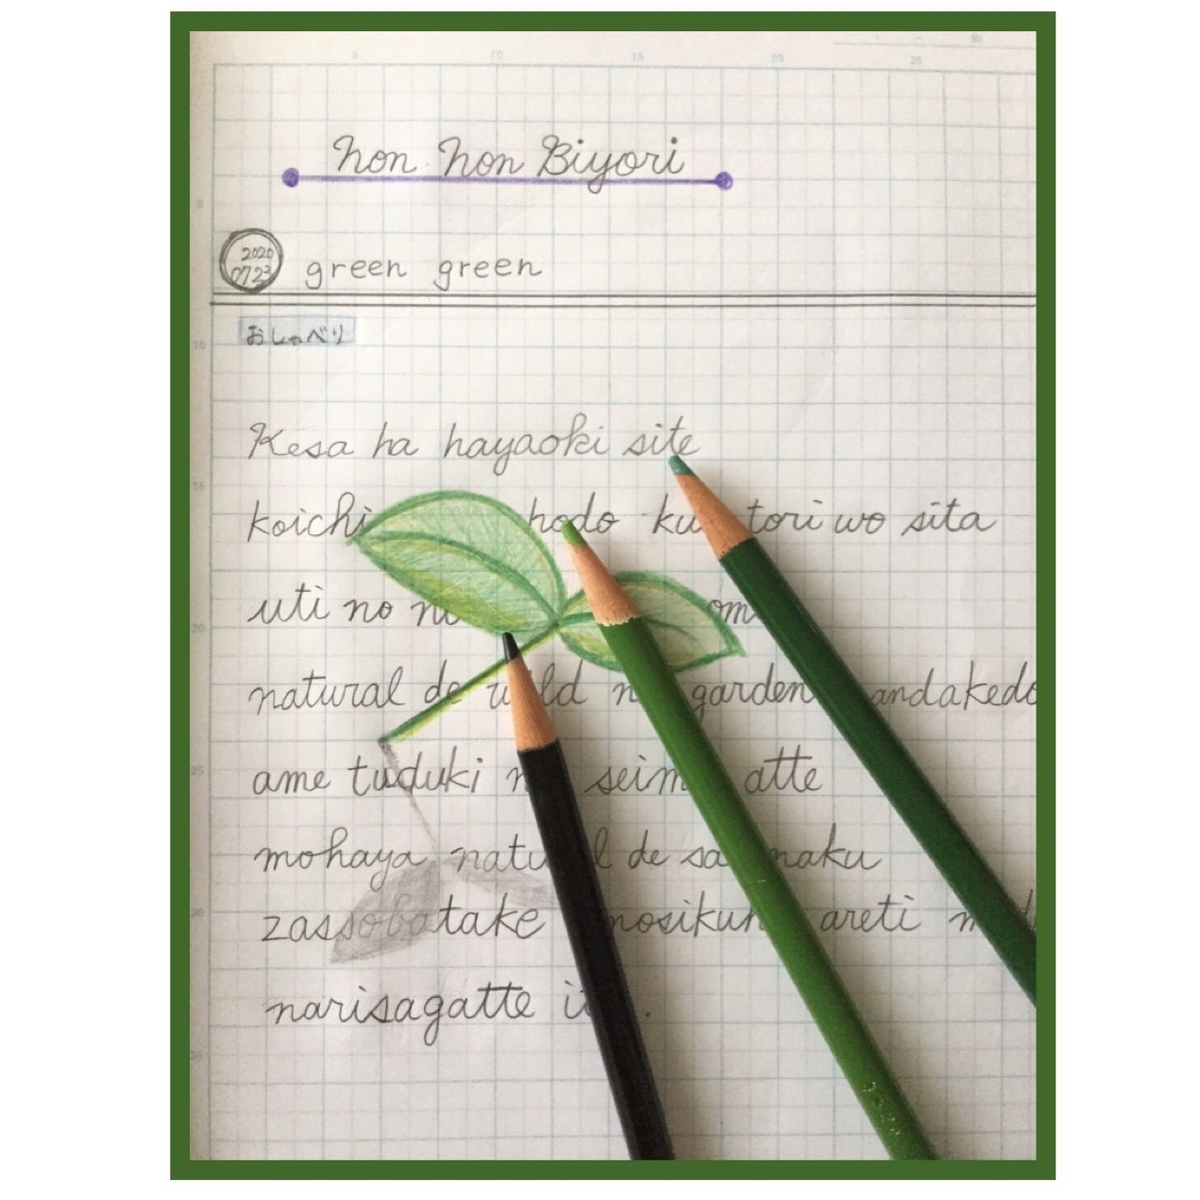 5 10 15 20 25
Non Non Biyori
5
2020
0723
green green
おしゃべり
10
Kesa ha hayaoki site
15
koichi hodo ku tori wo sita
uti no ni om
20
natural de wild n garden andakedo
25
ame tuduki n seim atte
mohaya natu l de sa maku
30
zassobatake mosikuh areti m
narisagatte it .
35